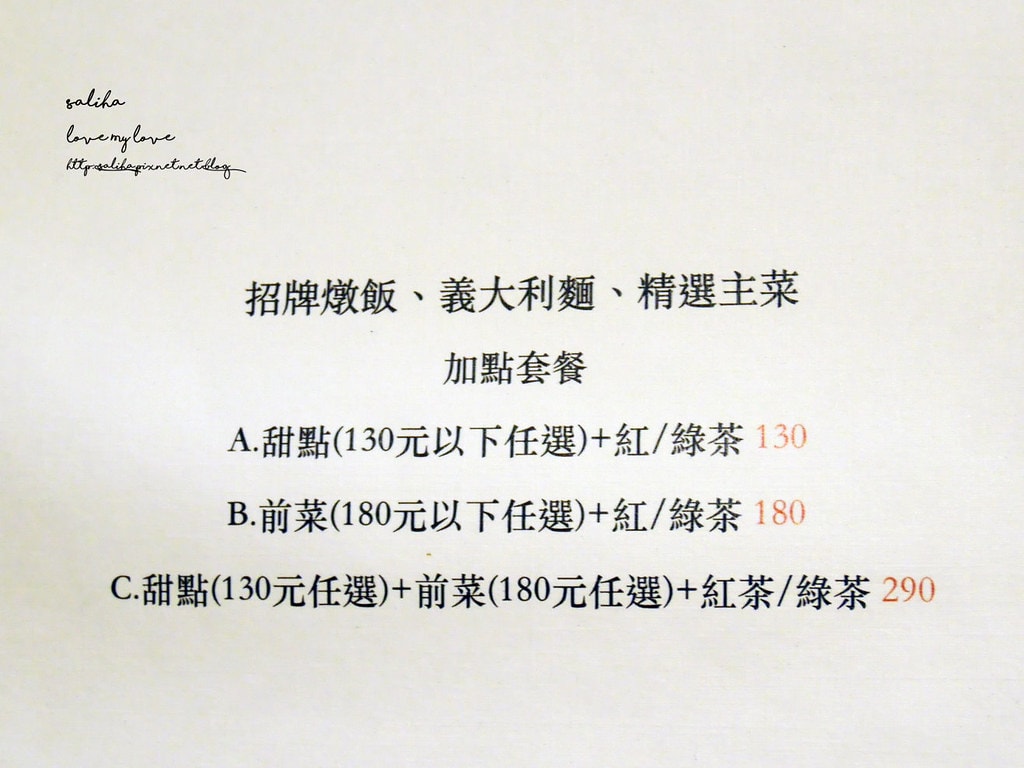 saliha
love my love
招牌燉飯、義大利麵、精選主菜
加點套餐
A.甜點(130元以下任選)+紅/綠茶 130
B.前菜(180元以下任選)+紅/綠茶 180
C.甜點(130元任選)+前菜(180元任選)+紅茶/綠茶 290